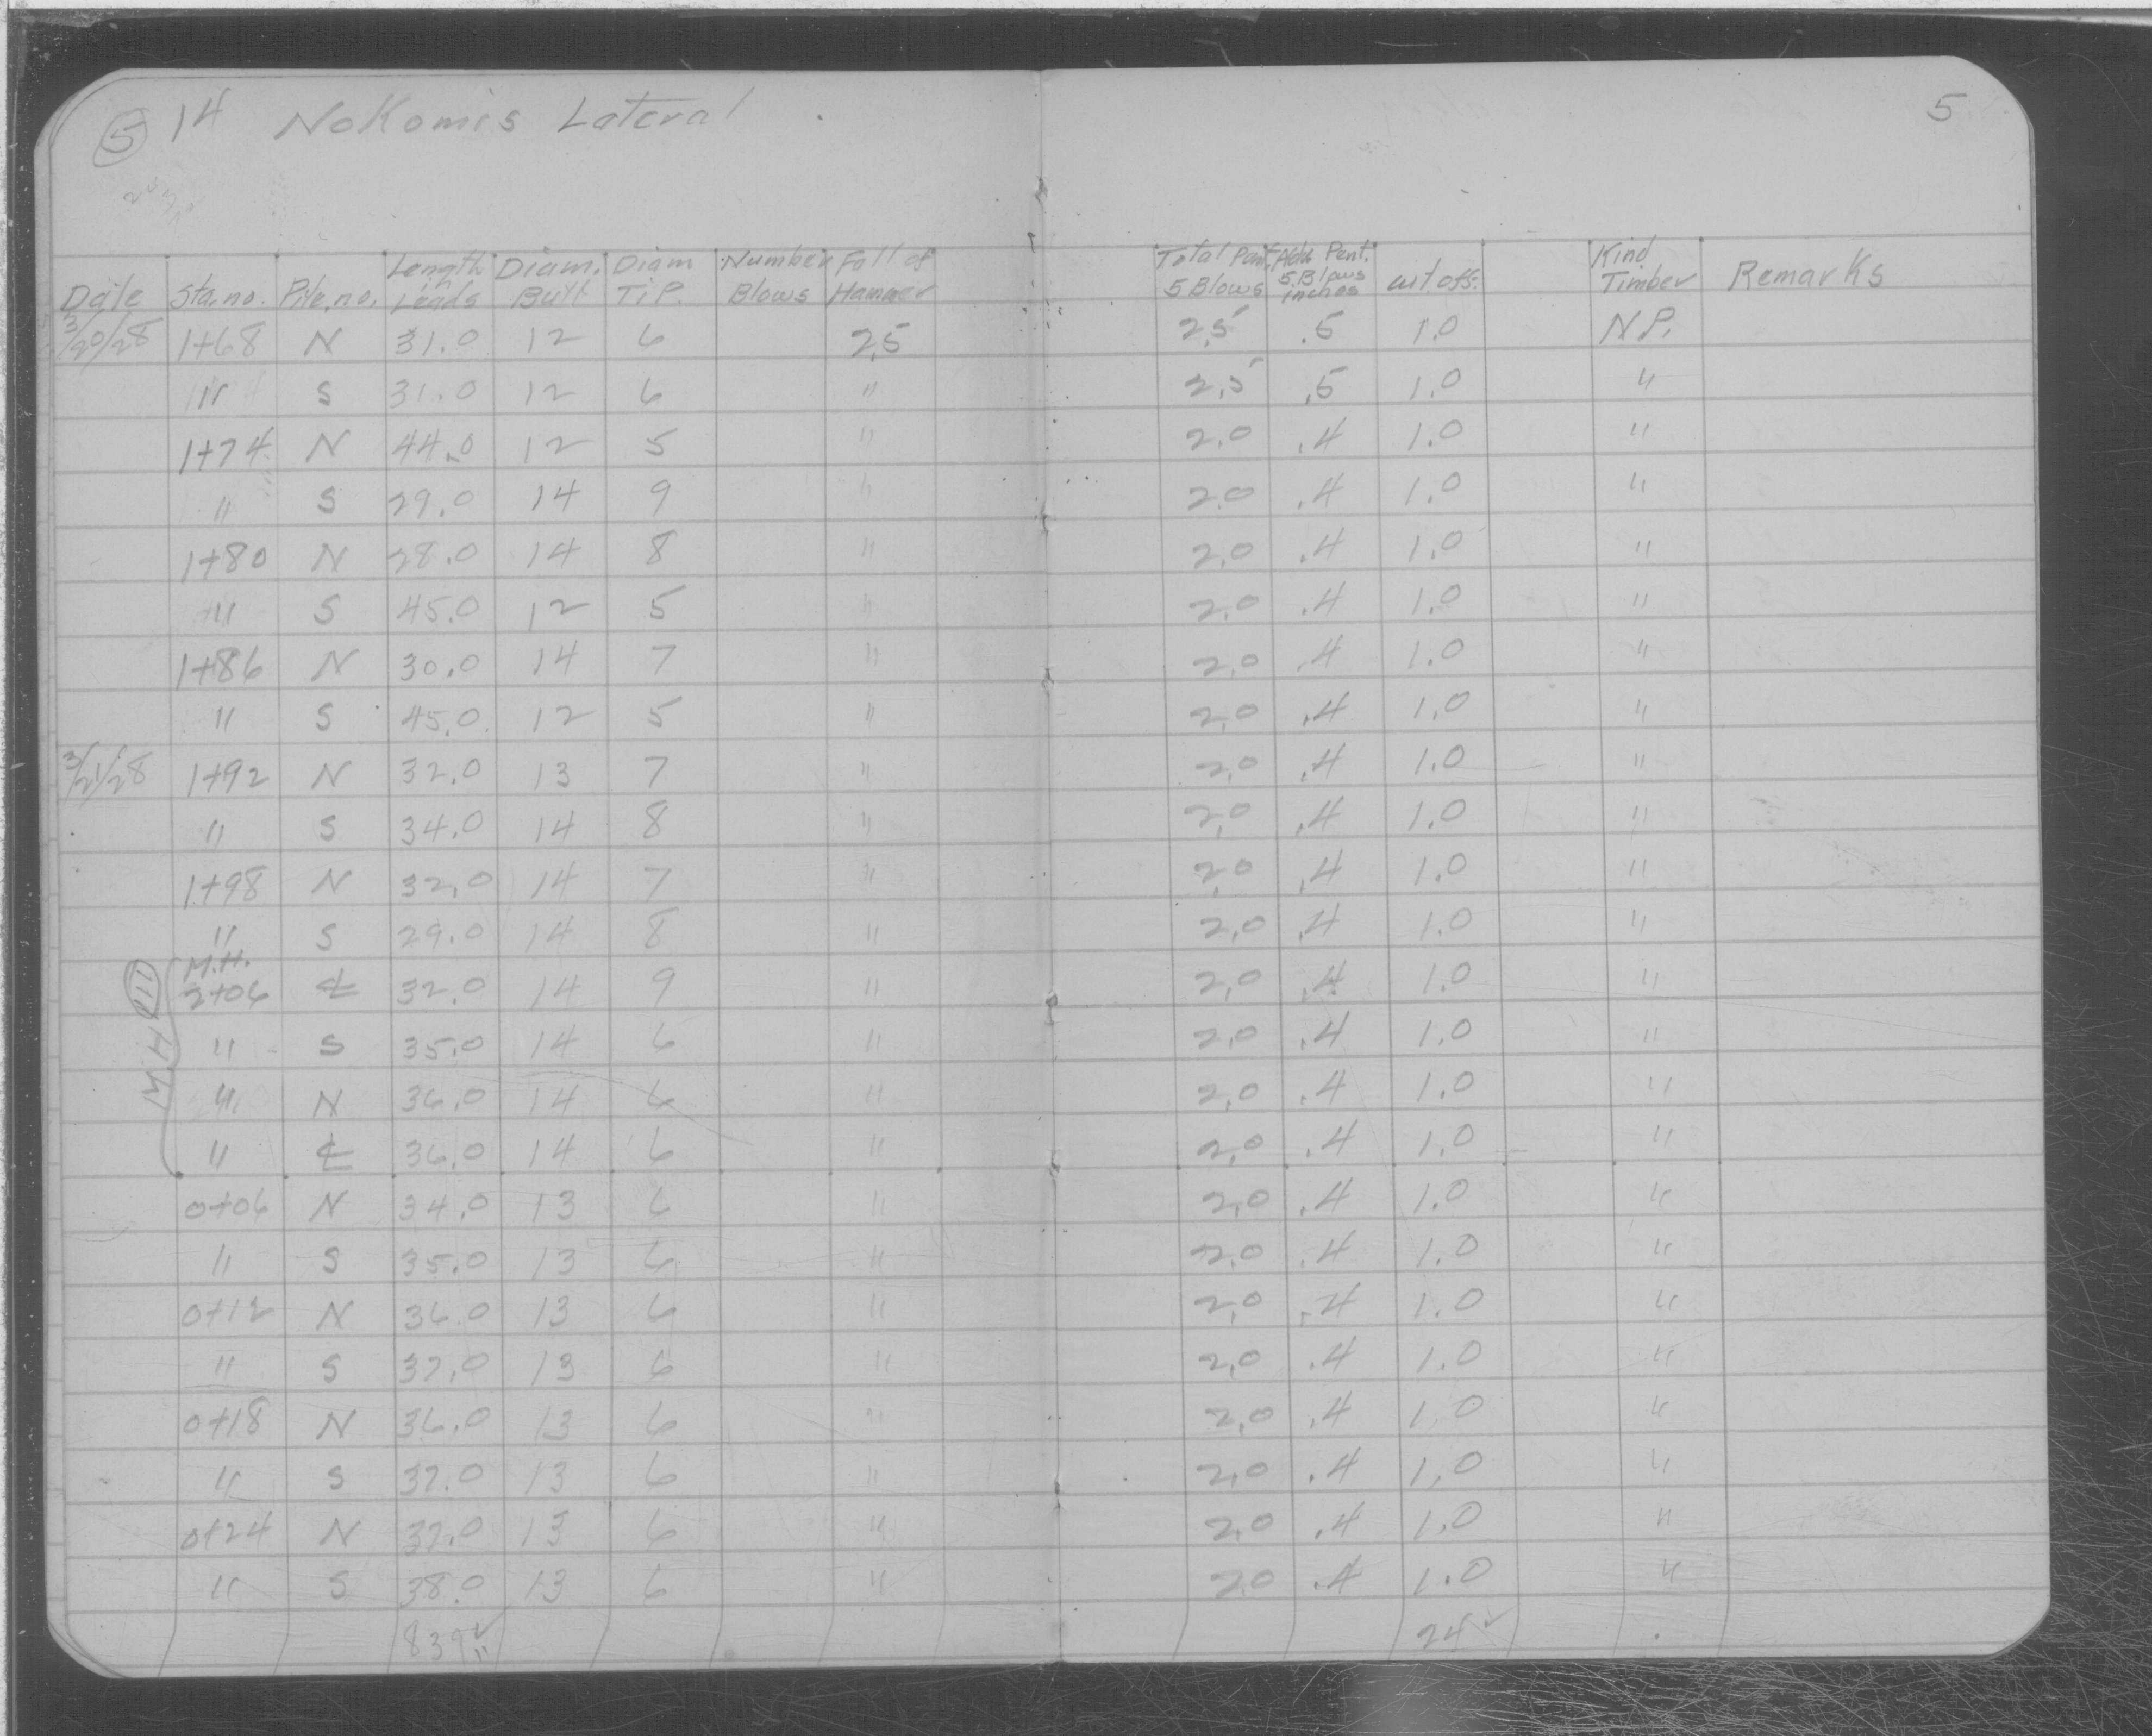 (5) 14 Nokomis Lateral 5
Date Sta. no. Pile. no. Length in Leads Diam. Butt Diam TiP. Number Blows Fall of Hammer Total Pent. 5 Blows Pent. 5 Blows inches cut off. Kind Timber Remarks
3/20/28 1+68 N 31.0 12 6 2.5 2.5 .5 1.0 N.P.
" S 31.0 12 6 " 2.5 .5 1.0 "
1+74 N 44.0 12 5 " 2.0 .4 1.0 "
" S 29.0 14 9 " 2.0 .4 1.0 "
1+80 N 28.0 14 8 " 2.0 .4 1.0 "
" S 45.0 12 5 " 2.0 .4 1.0 "
1+86 N 30.0 14 7 " 2.0 .4 1.0 "
" S 45.0 12 5 " 2.0 .4 1.0 "
3/21/28 1+92 N 32.0 13 7 " 2.0 .4 1.0 "
" S 34.0 14 8 " 2.0 .4 1.0 "
1+98 N 32.0 14 7 " 2.0 .4 1.0 "
" S 29.0 14 8 " 2.0 .4 1.0 "
M.H (111) M.H. 2+06 ℄ 32.0 14 9 " 2.0 .4 1.0 "
" S 35.0 14 6 " 2.0 .4 1.0 "
" N 36.0 14 6 " 2.0 .4 1.0 "
" ℄ 36.0 14 6 " 2.0 .4 1.0 "
0+06 N 34.0 13 6 " 2.0 .4 1.0 "
" S 35.0 13 6 " 2.0 .4 1.0 "
0+12 N 36.0 13 6 " 2.0 .4 1.0 "
" S 37.0 13 6 " 2.0 .4 1.0 "
0+18 N 36.0 13 6 " 2.0 .4 1.0 "
" S 37.0 13 6 " 2.0 .4 1.0 "
0+24 N 37.0 13 6 " 2.0 .4 1.0 "
" S 38.0 13 6 " 2.0 .4 1.0 "
839 ✓ 24 ✓